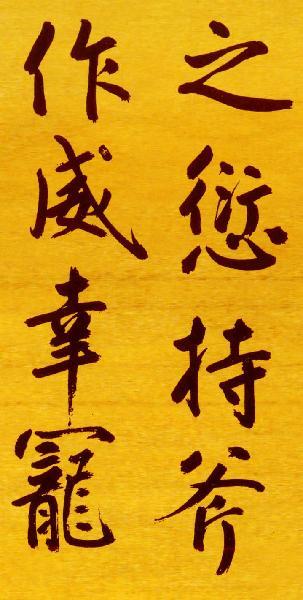 之愆持斧
作威幸寵